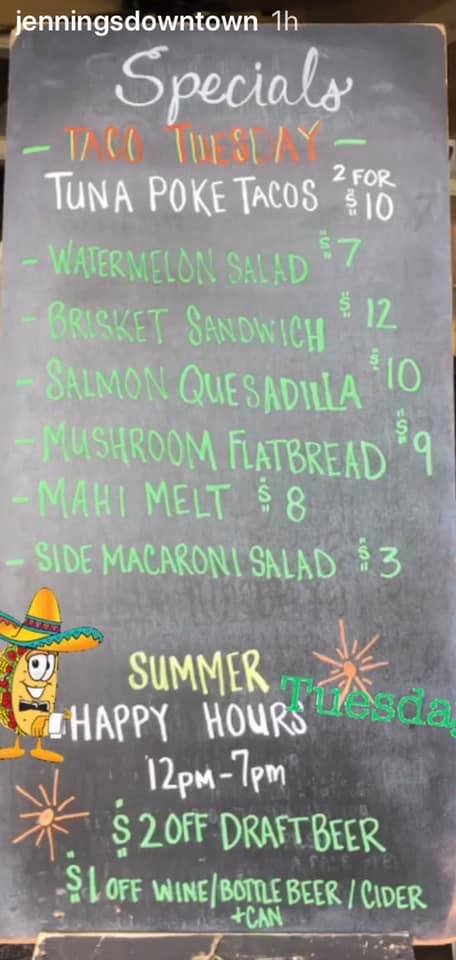 jenningsdowntown 1h
Specials
- TACO TUESDAY -
TUNA POKE TACOS 2 FOR $10
- WATERMELON SALAD $7
- BRISKET SANDWICH $12
- SALMON QUESADILLA $10
- MUSHROOM FLATBREAD $9
- MAHI MELT $8
- SIDE MACARONI SALAD $3
SUMMER
Tuesday
HAPPY HOURS
12PM-7PM
$2 OFF DRAFT BEER
$1 OFF WINE/BOTTLE BEER / CIDER
+CAN